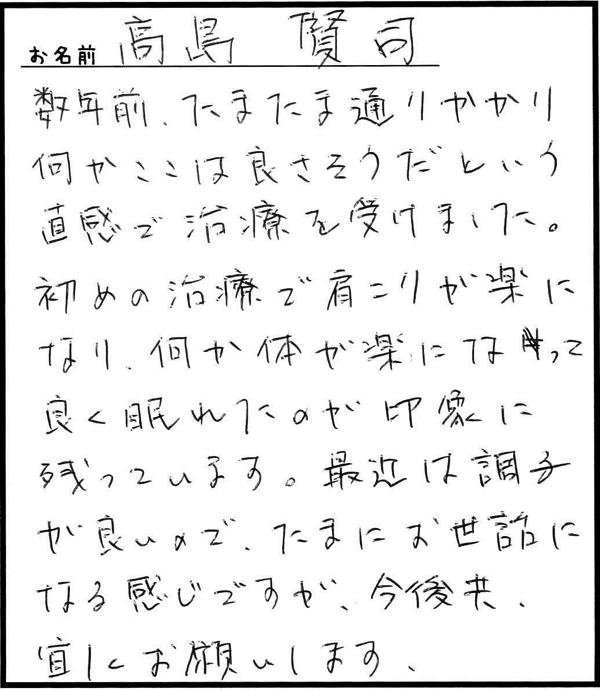 お名前 高島 賢司
数年前、たまたま通りかかり
何かここは良さそうだという
直感で治療を受けました。
初めの治療で肩こりが楽に
なり、何か体が楽になって
良く眠れたのが印象に
残っています。最近は調子
が良いので、たまにお世話に
なる感じですが、今後共、
宜しくお願いします、